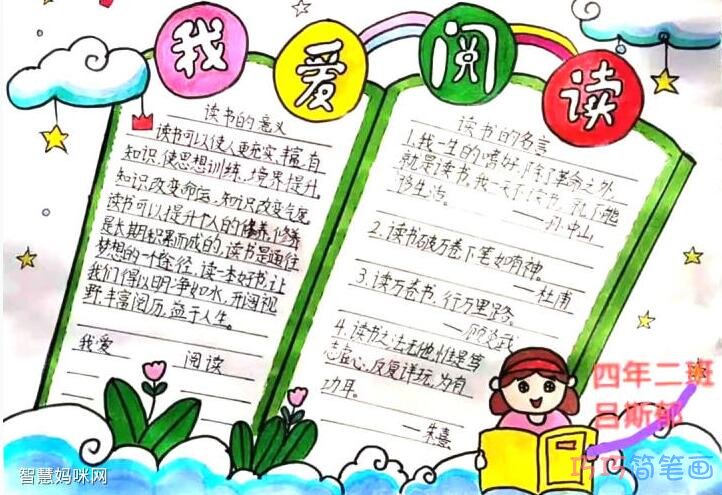 我爱阅读
读书的意义
读书可以使人更充实,丰富,有
知识,使思想训练,境界提升,
知识改变命运,知识改变气质
读书可以提升个人的修养,修养
是长期积累而成的,读书是通往
梦想的一个途径,读一本好书,让
我们得以明净如水,开阔视
野,丰富阅历,益于人生。
我爱 阅读
读书的名言
1.我一生的嗜好,除了革命之外,
就是读书,我一天不读书,就不能
够生活。 ——孙中山
2.读书破万卷下笔如有神。
——杜甫
3.读万卷书,行万里路。
——顾炎武
4.读书之法无他,惟是笃
志虚心,反复详玩,为有
功耳。
——朱熹
四年二班
吕斯郁
智慧妈咪网
巧巧简笔画